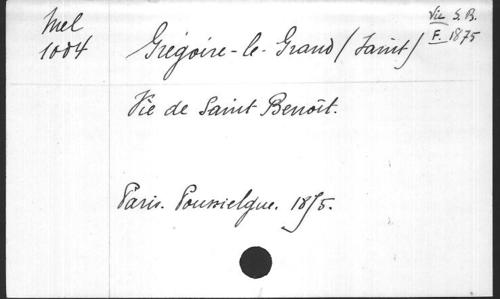 Mel
1004
Grégoire-le-Grand (Saint)
Vie S. B.
F. 1875
Vie de Saint Benoît.
Paris. Poussielgue. 1875.